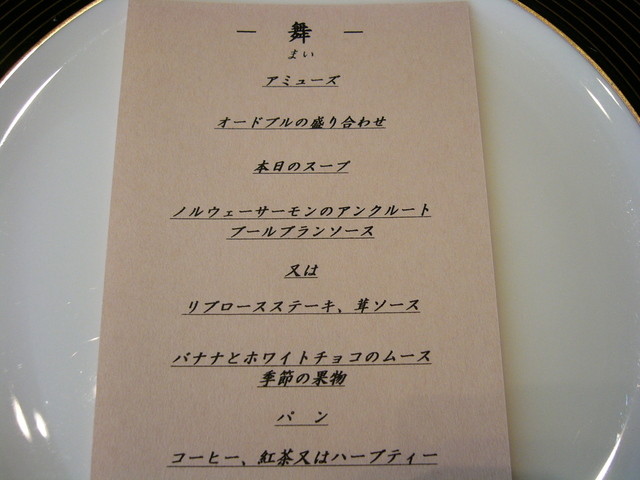 ― 舞 ―
まい
アミューズ
オードブルの盛り合わせ
本日のスープ
ノルウェーサーモンのアンクルート
ブールブランソース
又は
リブロースステーキ、茸ソース
バナナとホワイトチョコのムース
季節の果物
パン
コーヒー、紅茶又はハーブティー